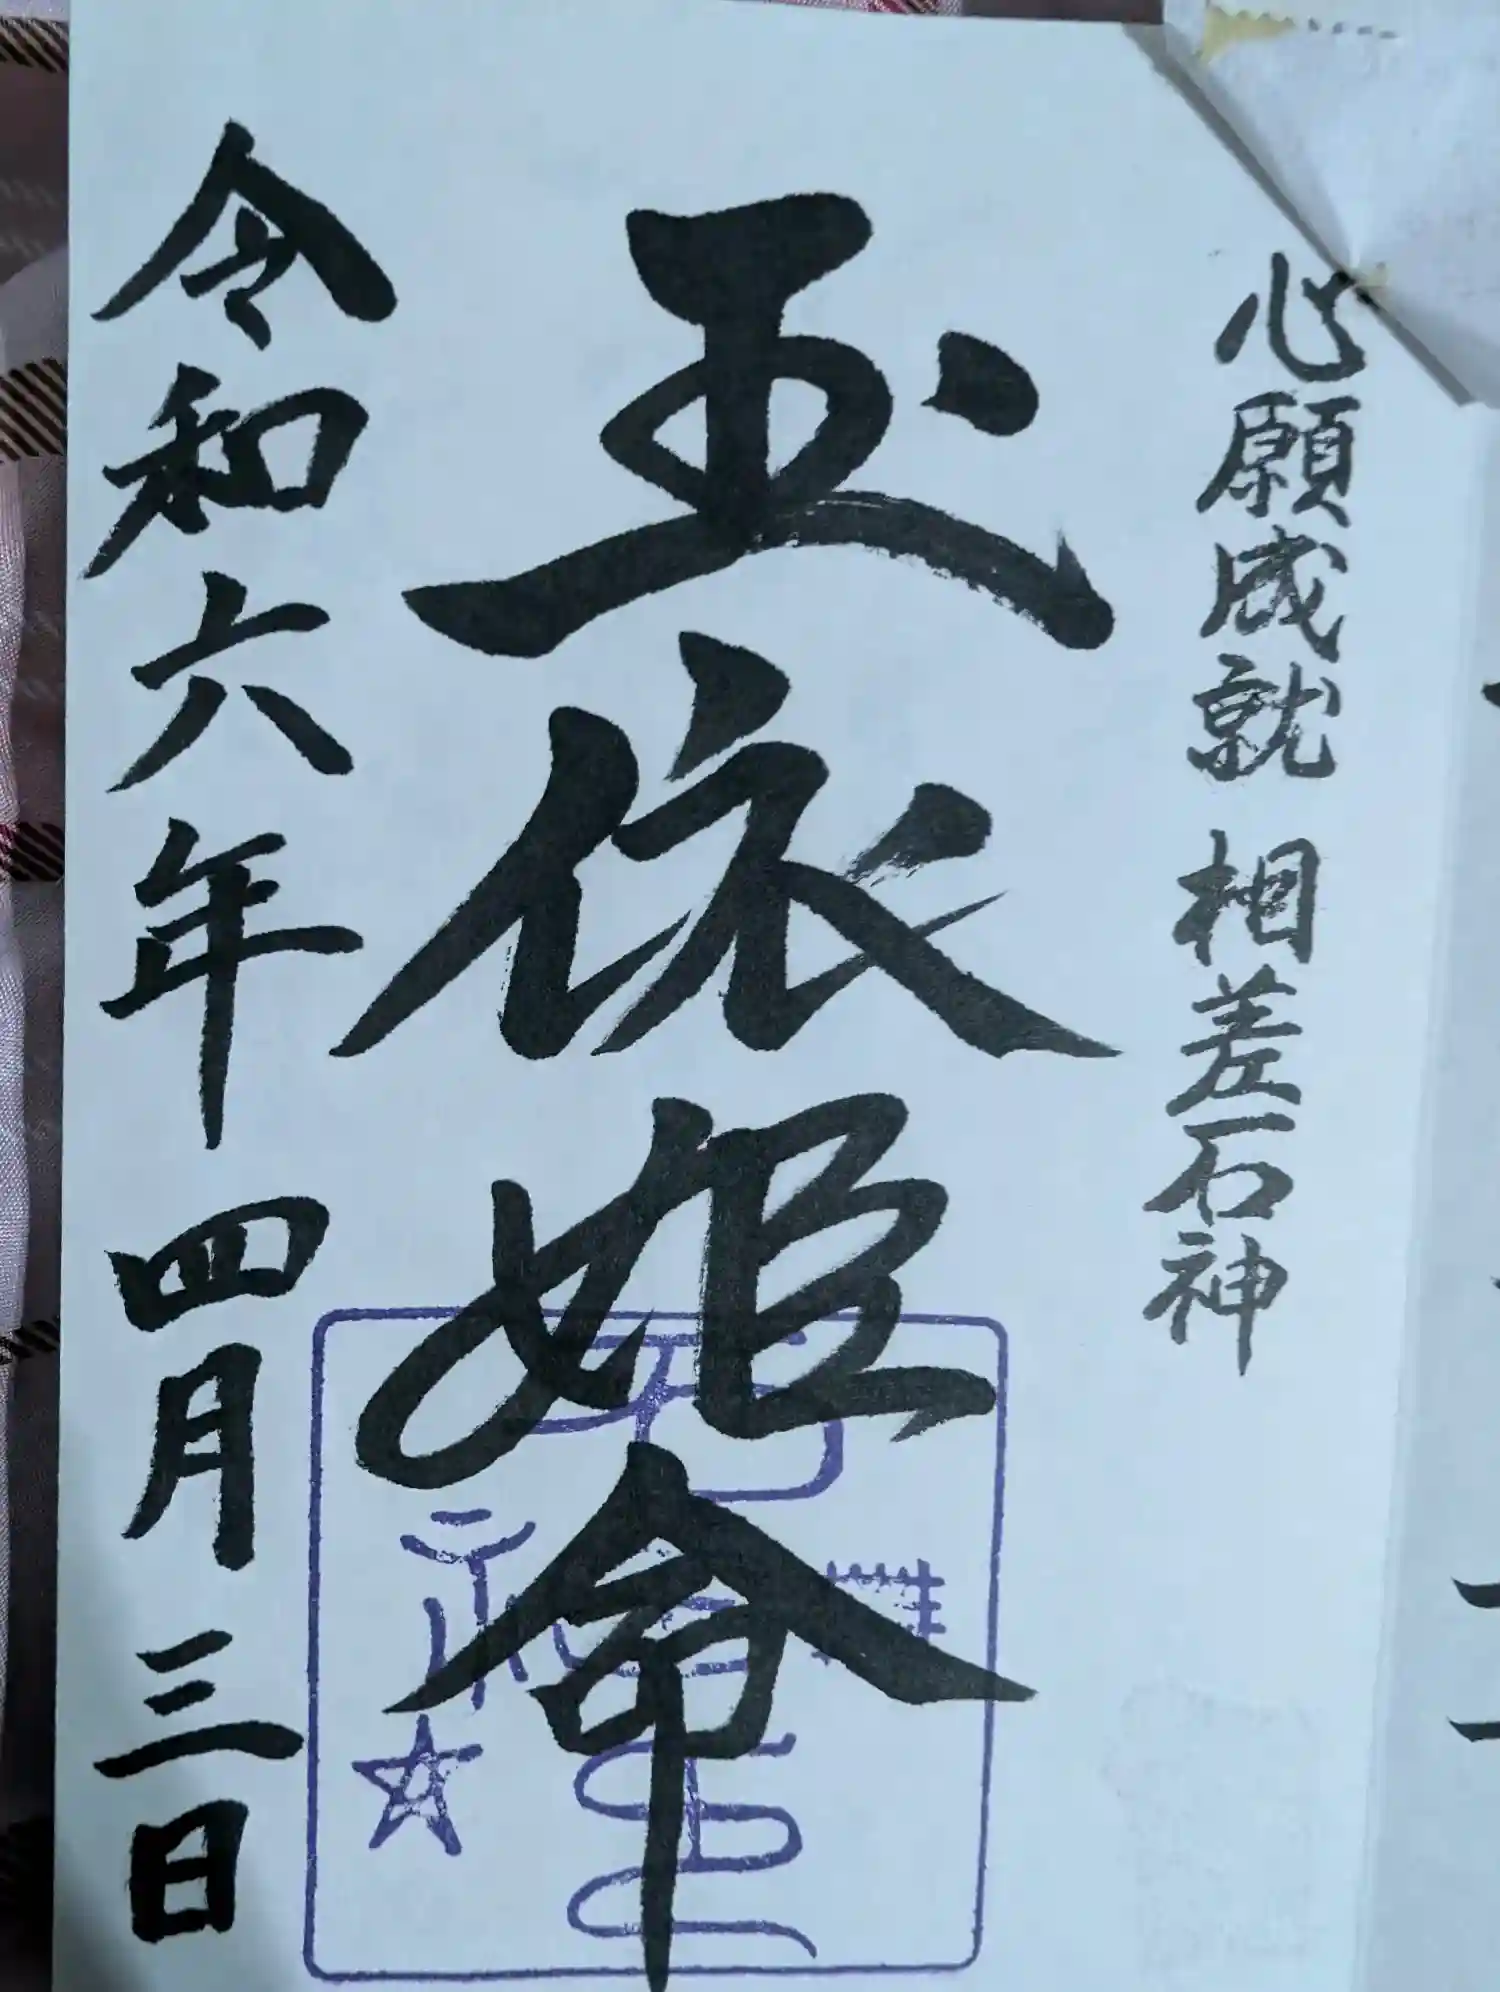 心願成就 相差石神
玉依姫命
令和六年 四月 三日